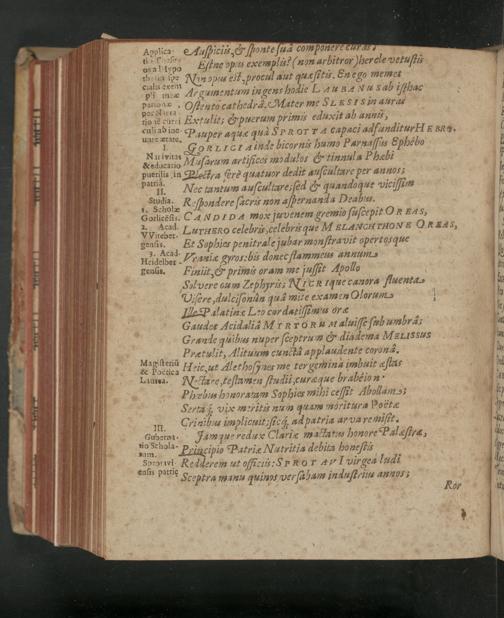 Auspiciis, & sponte suâ componere curas.
Estne opus exemplis? (non arbitror) hercle vetustis
Non opus est, procul aut quæsitis. En ego memet
Argumentum ingens hodie LAUBANUS ab isthac
Ostento cathedrâ. Mater me SLESIS in auras
Extulit; & puerum primis eduxit ab annis,
Pauper aquæ quà SPROTTA capaci adfunditur HEBRO.
GORLICI A inde bicornis humo Parnassus Ephêbo
Musarum artifices modulos & tinnula Phœbi
Plectra ferè quatuor dedit auscultare per annos;
Nec tantum auscultare; sed & quandoque vicissim
Respondere sacris non aspernanda Deabus.
CANDIDA mox juvenem gremio suscepit OREAS,
LUTHERO celebris, celebrisque MELANCHTHONE OREAS,
Et Sophies penitrale jubar monstravit opertosque
Uraniæ gyros: bis donec flammeus annum
Finiit, & primis oram me jussit Apollo
Solvere cum Zephyris; NICRIque canora fluenta
Visere, dulcisonûn quâ mite examen Olorum
Ille Palatinæ Leo cordatissimus oræ
Gaudet Acidaliâ MYRTORUM maluisse sub umbrâ;
Grande quibus nuper sceptrum & diadema MELISSUS
Prætulit, Alituum cunctâ applaudente coronâ.
Heic, ut Alethosynes me tergeminâ imbuit æstas
Nectare, testamen studii, curæque brabêion
Phœbus honoratam Sophies mihi cessit Abollam;
Sertáq́;, vix meritis num quam moritura Poëtæ
Crinibus implicuit: sicq́;, ad patria arva remisit.
Jamque redux Clariæ mactatus honore Palæstræ,
Principio Patriæ Nutritia debita honestis
Redderem ut officiis: SPROTAVI virgea ludi
Sceptra manu quinos versabam industrius annos;
Ror
Applica-
tio
Hypo
cialis exem
pli
per Narra-
culi ab ine-
unte ætate.
I.
Nativitas
& educatio
puerilis in
patriâ.
II.
Studia.
1. Scholæ
Gorlicēsis.
2. Acad.
VViteber-
gensis.
3. Acad.
Heidelber-
gensis.
Magisteriū
& Poëtica
Laurea.
III.
Guberna-
tio Schola-
rum.
Sprotavi-
ensis patriæ